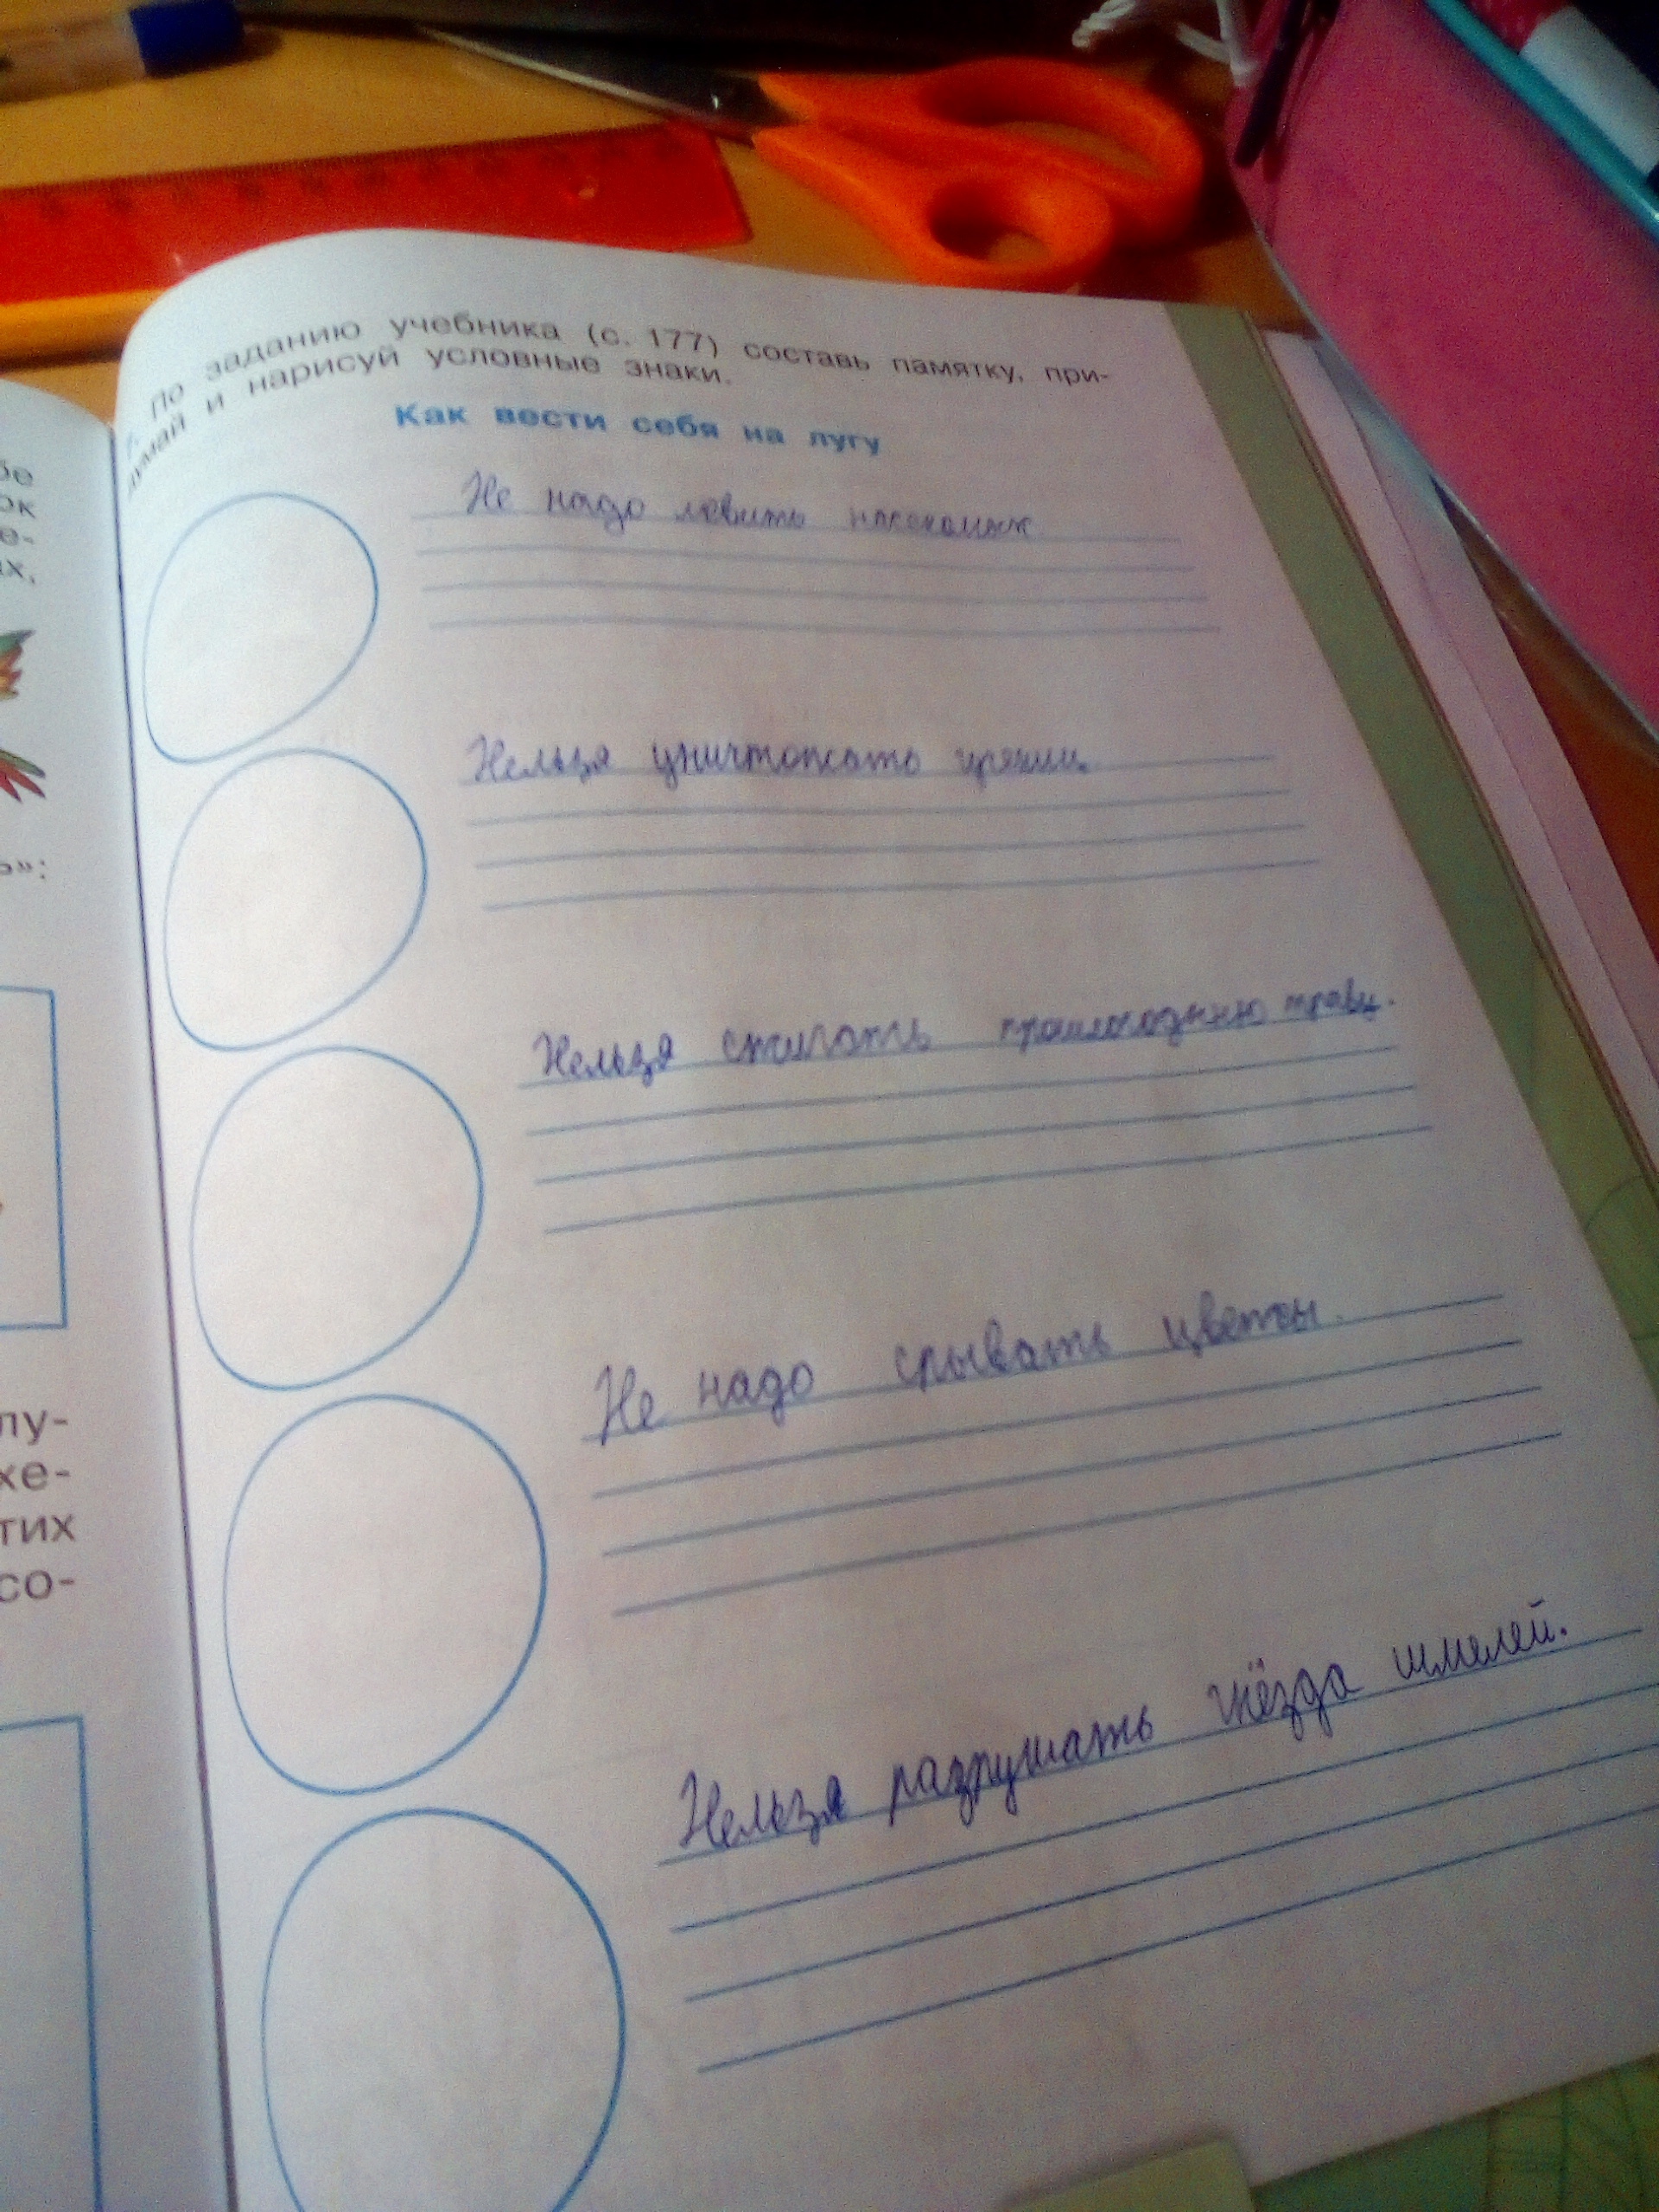 бе
ок
е-
ах,
ь»:
лу-
же-
тих
со-
По заданию учебника (с. 177) составь памятку, при-
думай и нарисуй условные знаки.
Как вести себя на лугу
Не надо ловить насекомых
Нельзя уничтожать
Нельзя сжигать прошлогоднюю траву.
Не надо срывать цветы.
Нельзя разрушать гнёзда шмелей.